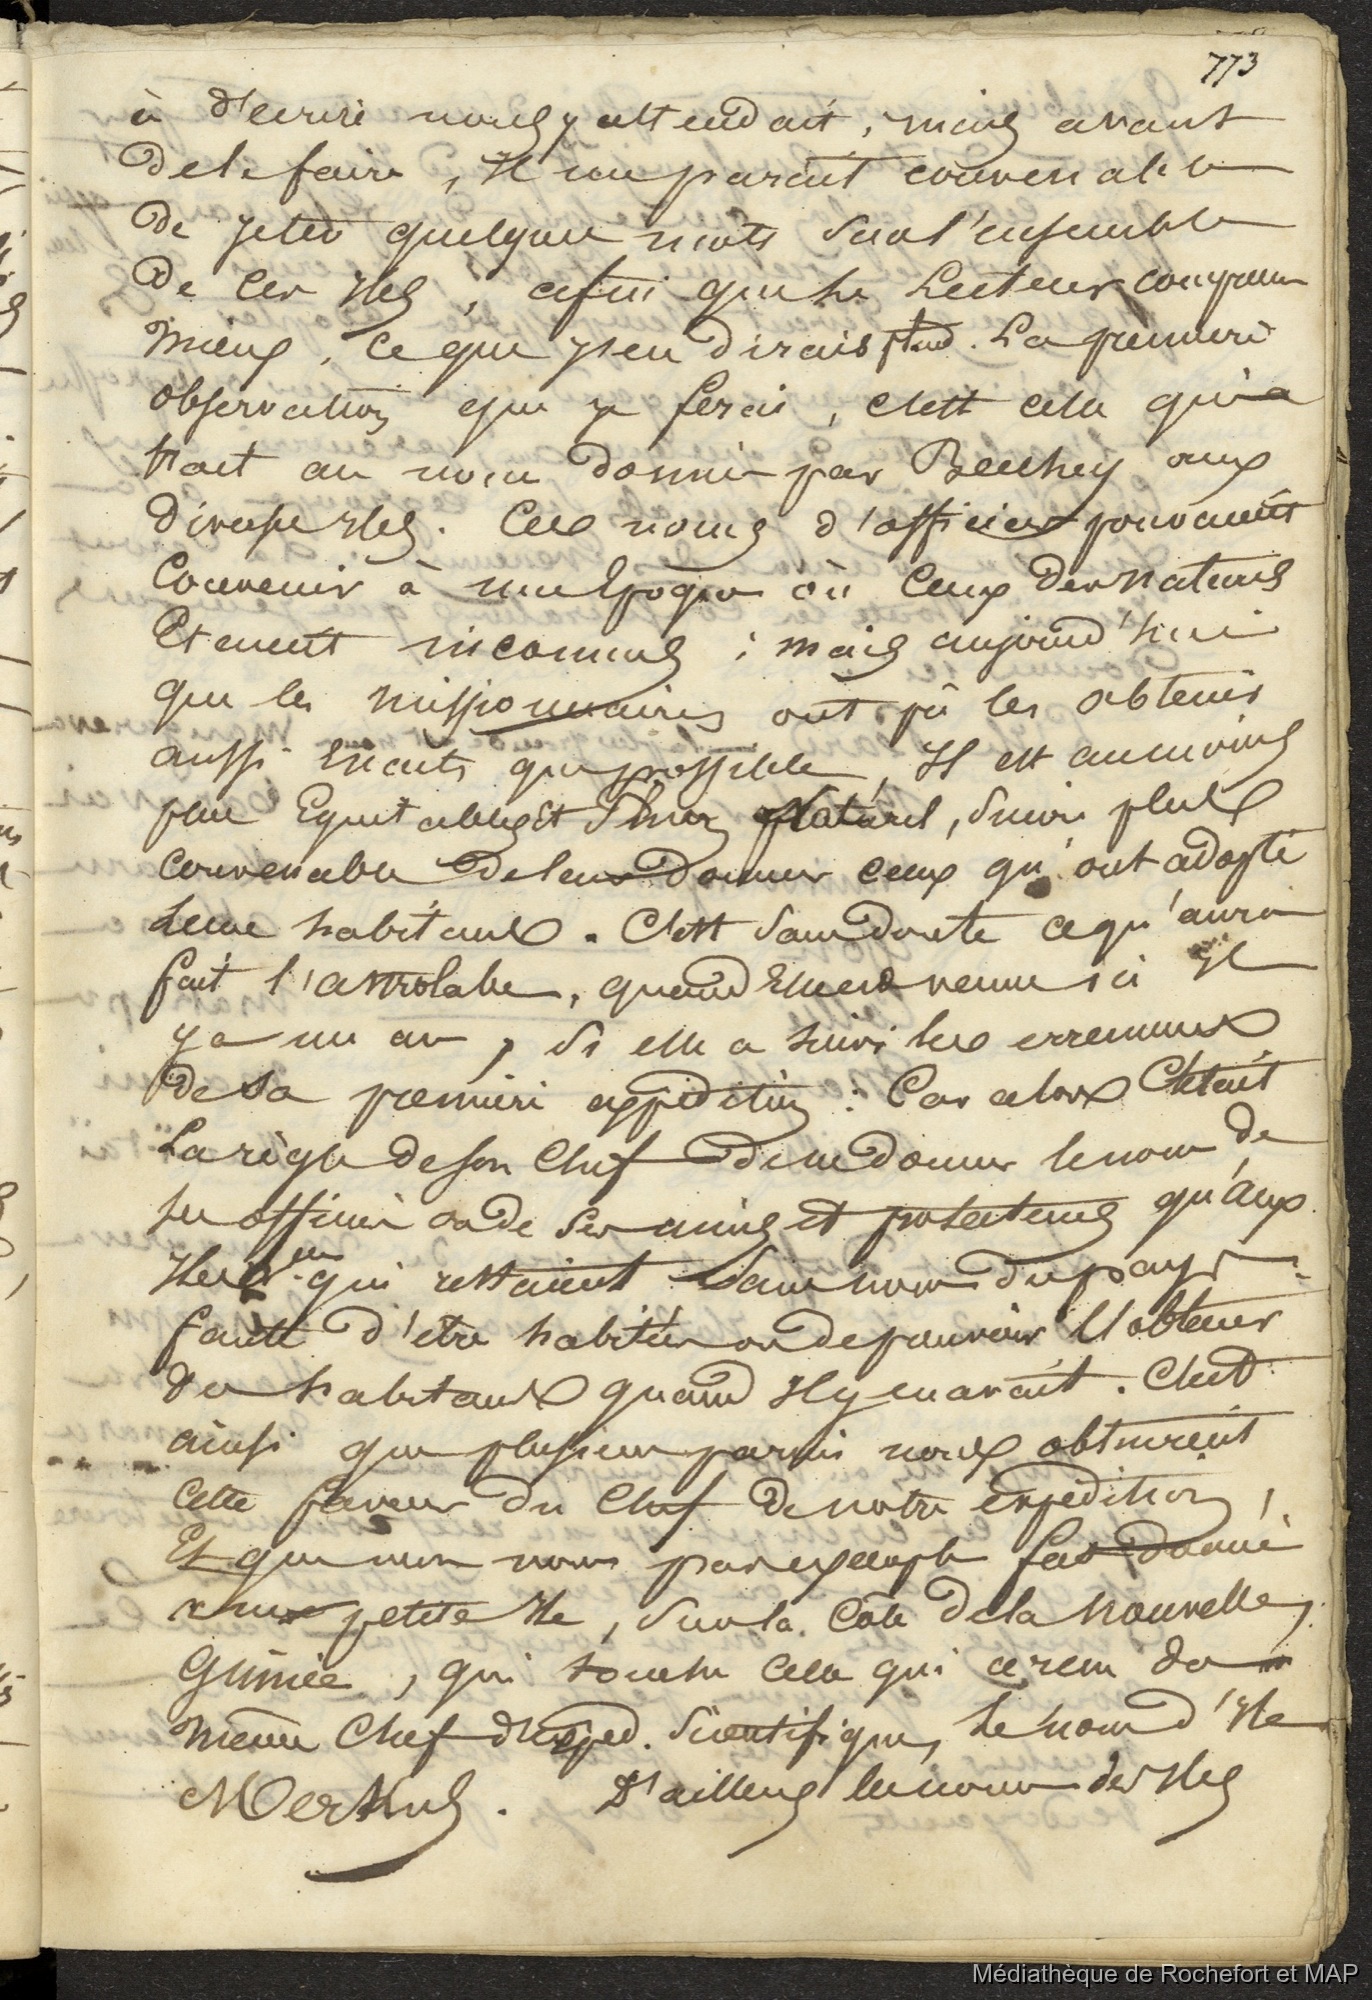 773
à d'ecrire nous y attendait ; mais avant
de le faire, Il me parait convenable
De jeter quelques mots Sur l'ensemble
De Ces Iles, afin que le Lecteur comprenne
Mieux, Ce que j'en dirais plus tard. La premiere
Observation que je ferai, c'est cela qui a
trait au nom donnés par Beechey aux
Diverses Iles. Ces noms d'officiers pouvaient
Convenir à une Epoque où Ceux des naturels
Etaient inconnus ; mais aujourd'hui
que les missionnaires ont pû les obtenir
aussi Exacts que possible, Il est au moins
plus Equitable, Et plus Naturel, Sinon plus
Convenable de leur donner ceux qu'ont adopté
leurs habitans. C'est Sans doute ce qu'aura
fait l'astrolabe, quand Elle est venue ici Il
y a un an, Si elle a Suivi les erremens
De Sa première expedition : Car alors C'était
La règle de Son Chef de ne donner le nom de
Ses officiers ou de Ses amis et protecteurs qu'aux
Iles qui restaient Sans nom du pays
faute d'être habitées ou de pouvoir l'obtenir
Des habitans quand Il y en avait. C'est
ainsi que plusieurs parmi nous obtinrent
Cette faveur du Chef De notre expédition,
Et que mon nom par exemple fut donné
a une petite Ile, Sur la Côte De la Nouvelle
Guinée, qui touche Celle qui a reçu du
Même Chef d'exped. Scientifique, le nom d'Ile
Merkus. D'ailleurs les noms des Iles
Médiathèque de Rochefort et MAP